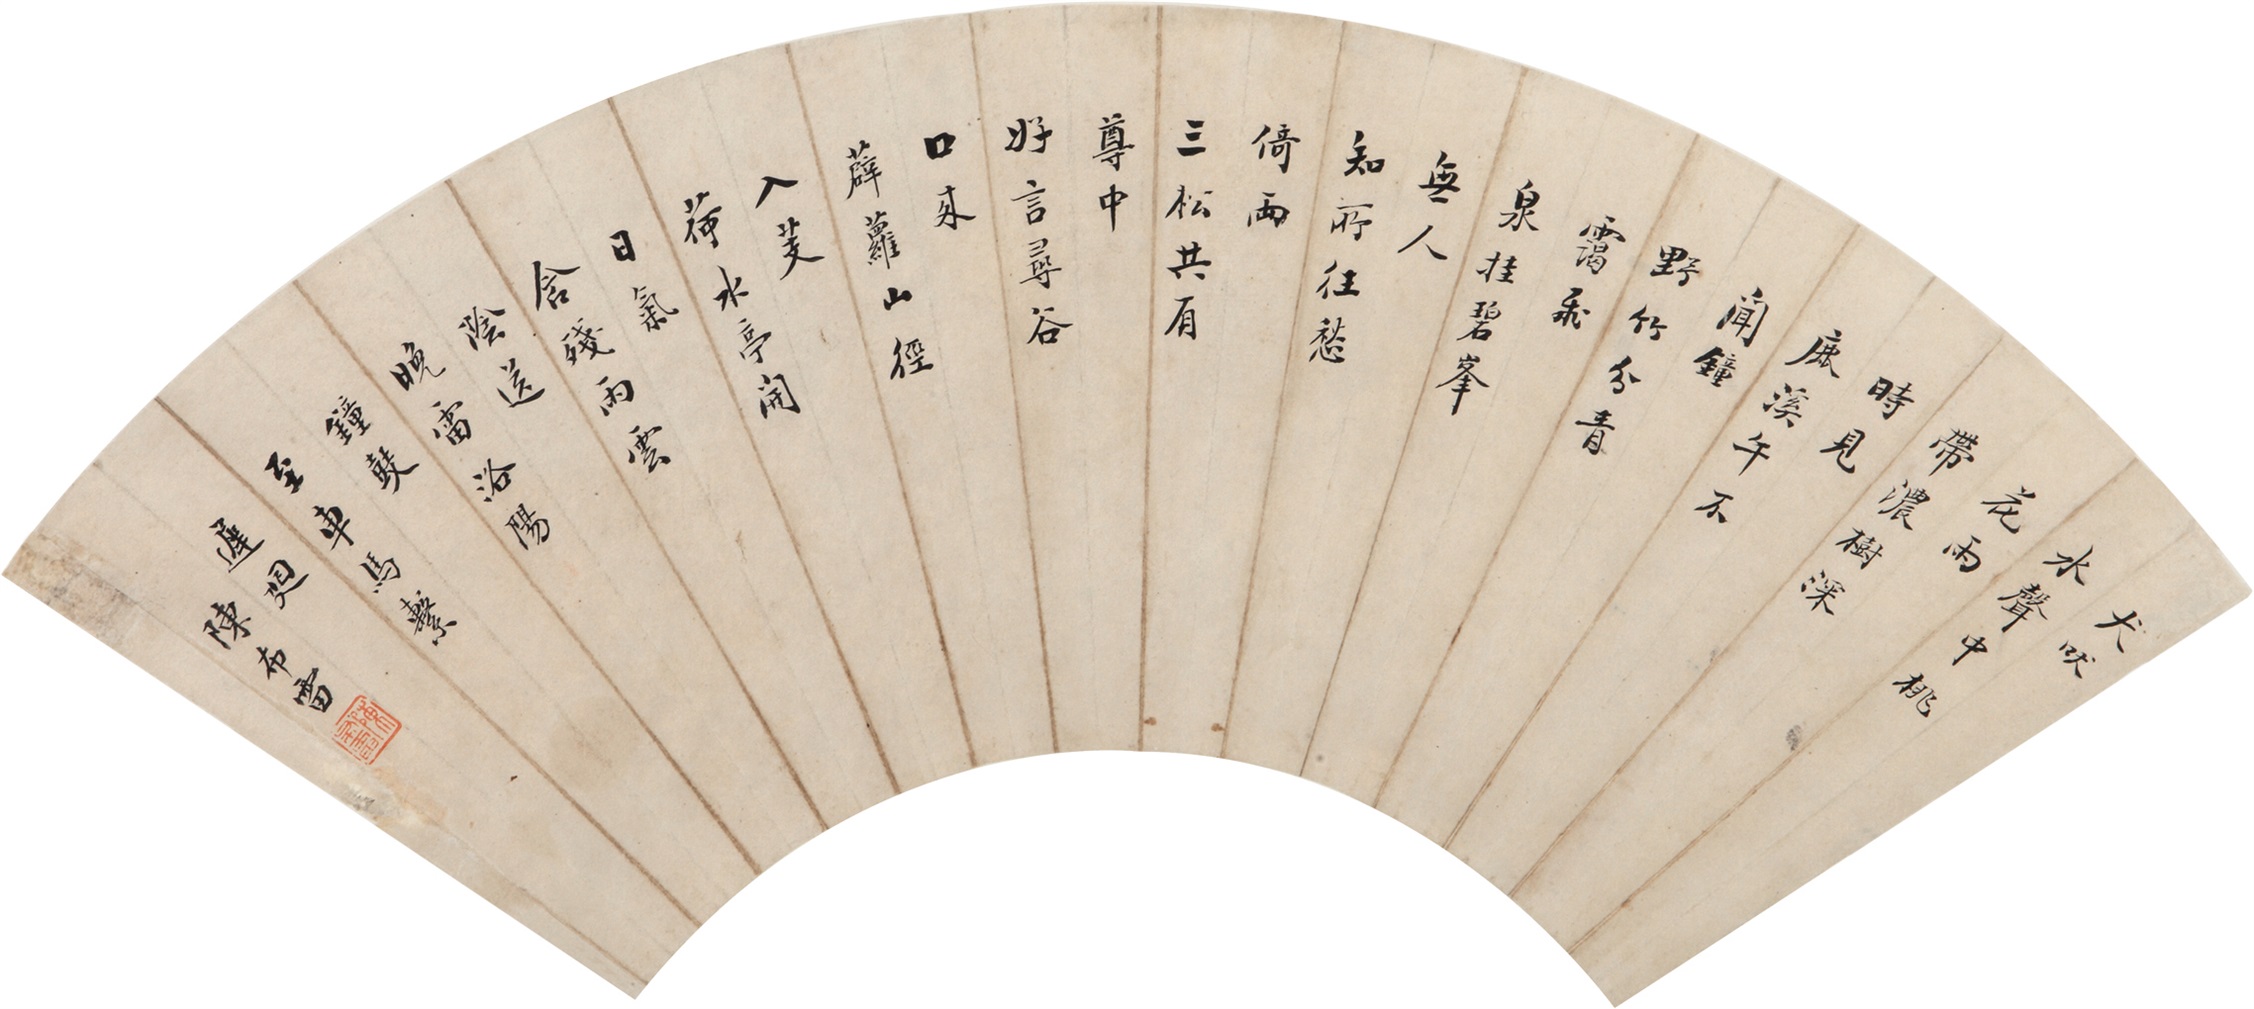 犬吠
水聲中桃
花雨
帶濃樹深
時見
鹿溪午不
聞鐘
野竹分青
靄飛
泉挂碧峯
無人
知所往愁
倚兩
三松共有
尊中
好言尋谷
口來
薜蘿山徑
入芰
荷水亭開
日氣
含殘雨雲
陰送
晚雷洛陽
鐘鼓
至車馬繫
遲迴
陳布雷